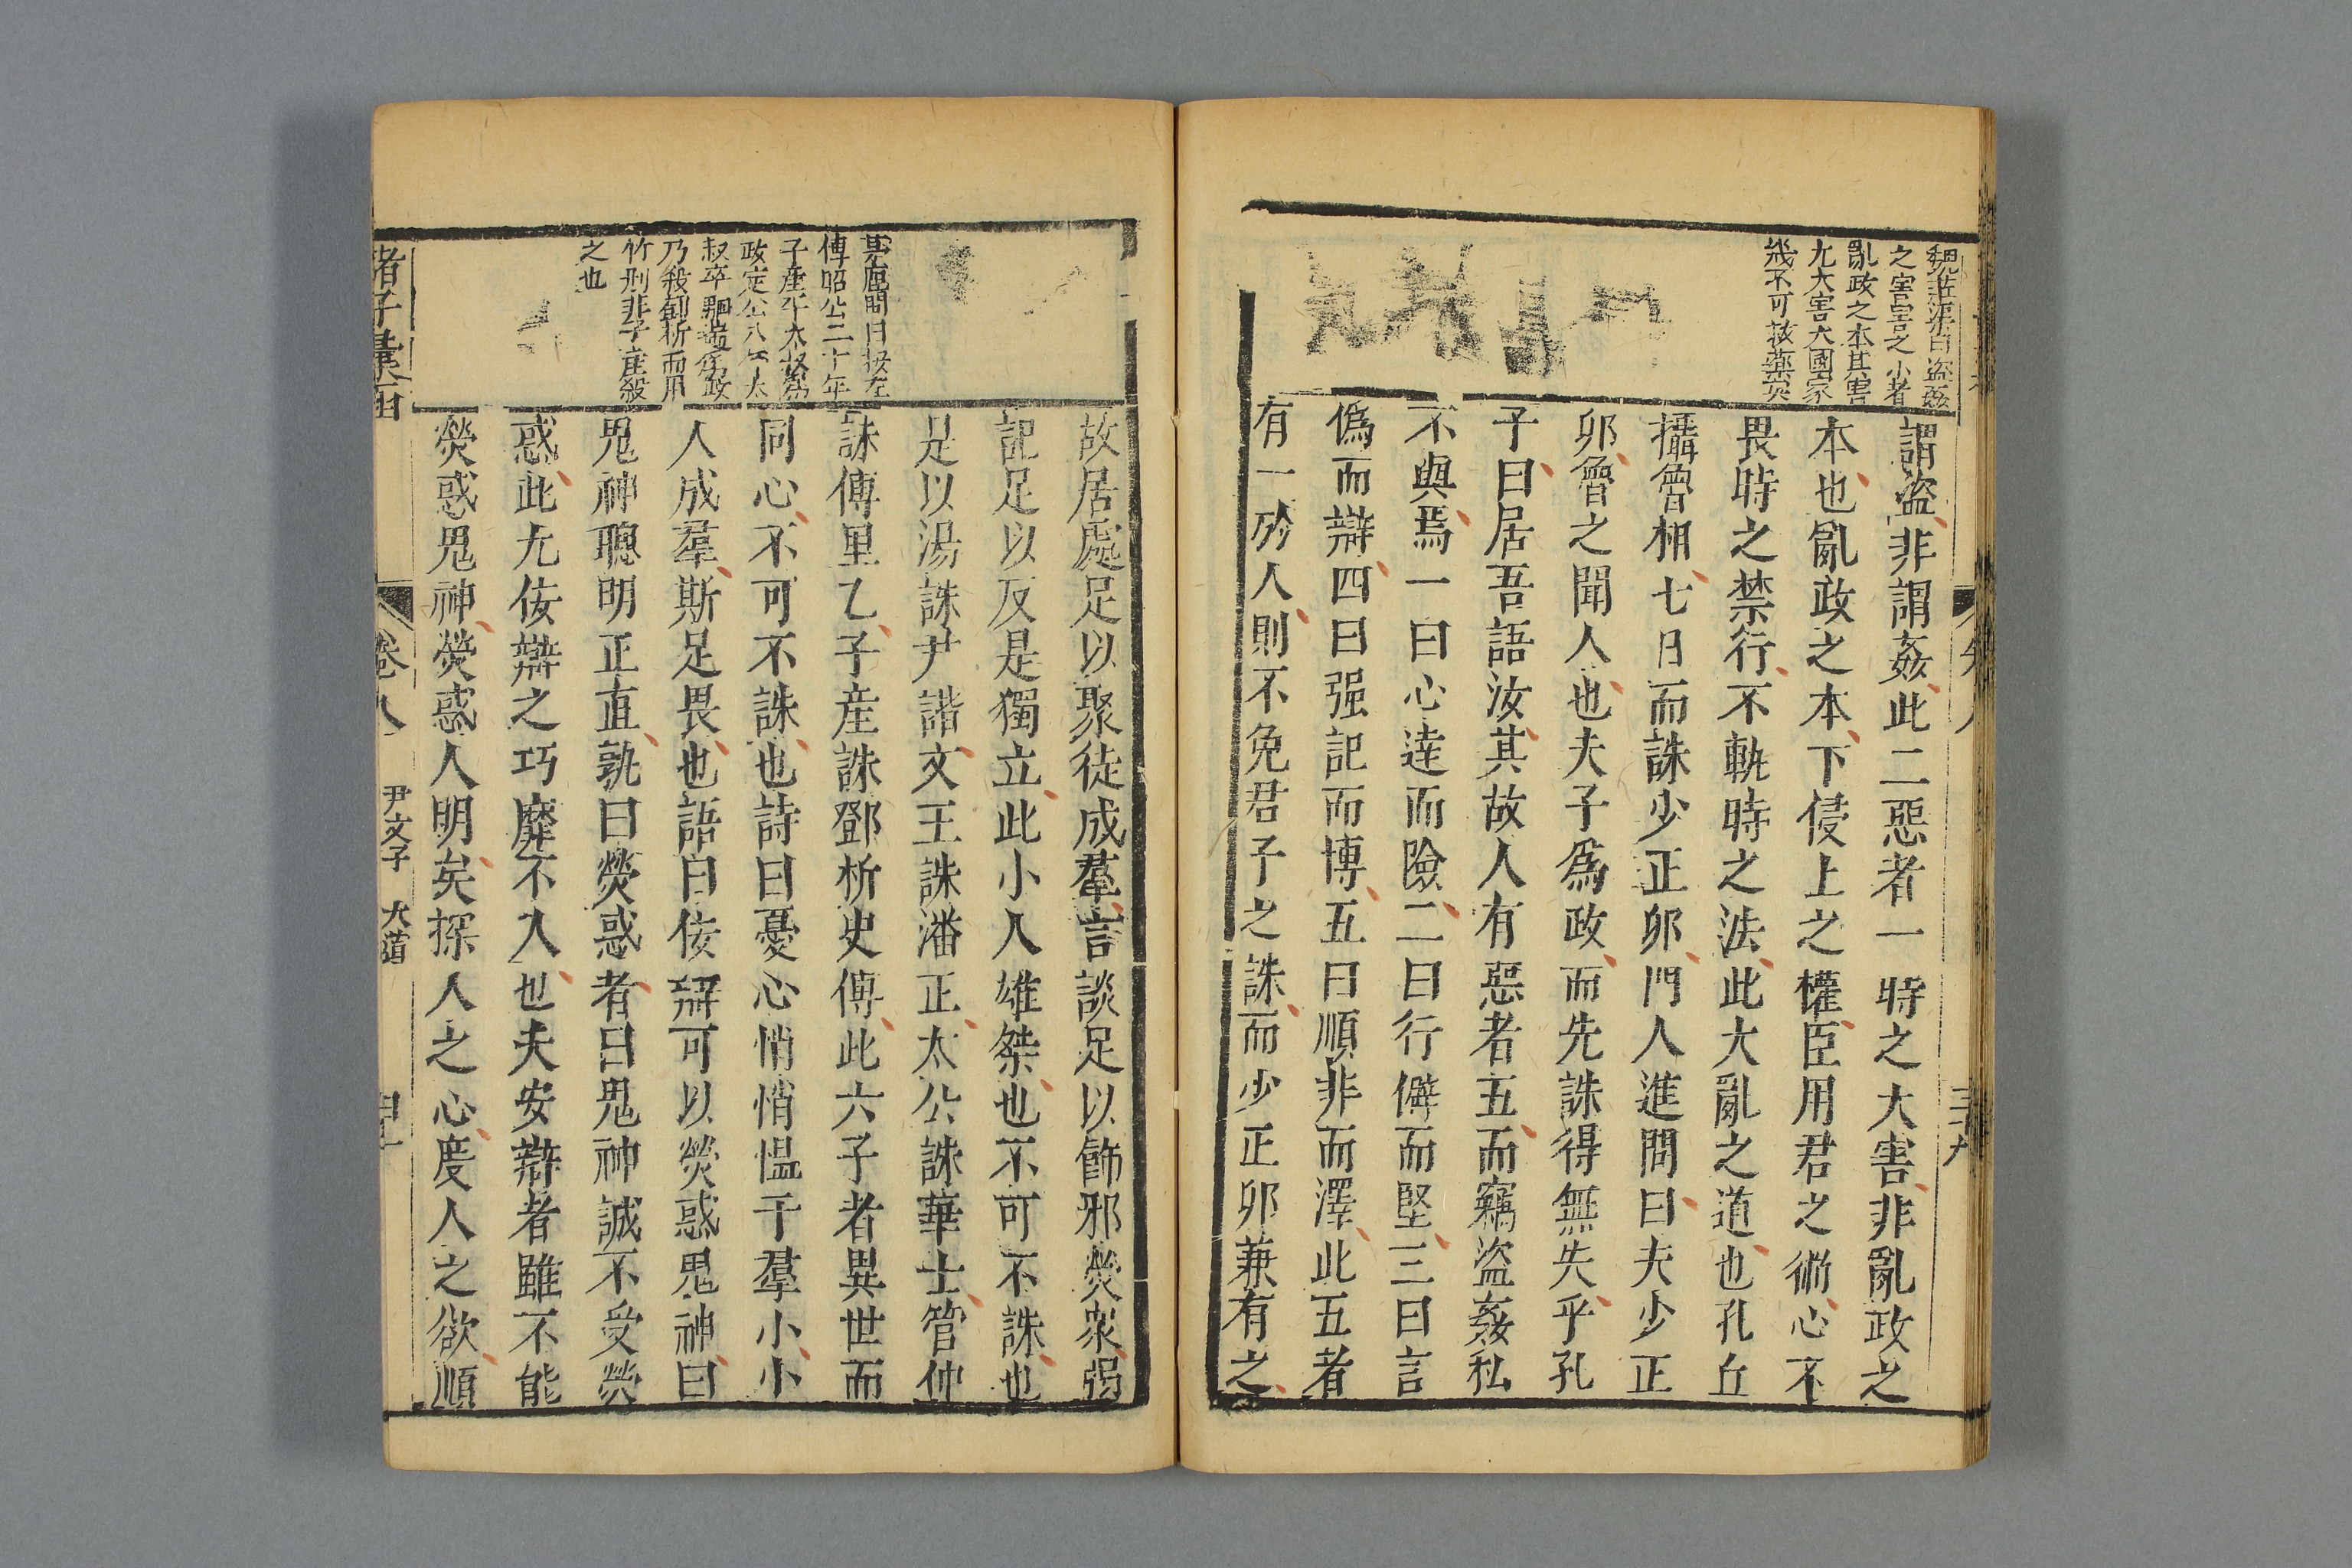 之害害之小者
亂政之本其害
尤大害大國家
幾不可救藥矣
謂盜非謂姦此二惡者一時之大害非亂政之
本也亂政之本下侵上之權臣用君之術心不
畏時之禁行不軌時之法此大亂之道也孔丘
攝魯相七日而誅少正卯門人進問曰夫少正
卯魯之聞人也夫子爲政而先誅得無失乎孔
子曰居吾語汝其故人有惡者五而竊盜姦私
不與焉一曰心達而險二曰行僻而堅三曰言
僞而辯四曰强記而博五曰順非而澤此五者
有一於人則不免君子之誅而少正卯兼有之
問曰按左
傳昭公二十年
子產卒太叔爲
政定公八年太
叔卒駟歂爲政
乃殺鄧析而用
竹刑非子產殺
之也
故居處足以聚徒成羣言談足以飾邪熒衆强
記足以反是獨立此小人雄桀也不可不誅也
是以湯誅尹諧文王誅潘正太公誅華士管仲
誅傅里乙子產誅鄧析史傅此六子者異世而
同心不可不誅也詩曰憂心悄悄慍于羣小小
人成羣斯足畏也語曰佞辯可以熒惑鬼神曰
鬼神聰明正直孰曰熒惑者曰鬼神誠不受熒
惑此尤佞辯之巧靡不入也夫妄辯者雖不能
熒惑鬼神熒惑人明矣探人之心度人之欲順
諸子彙函
卷八
尹文子
大道